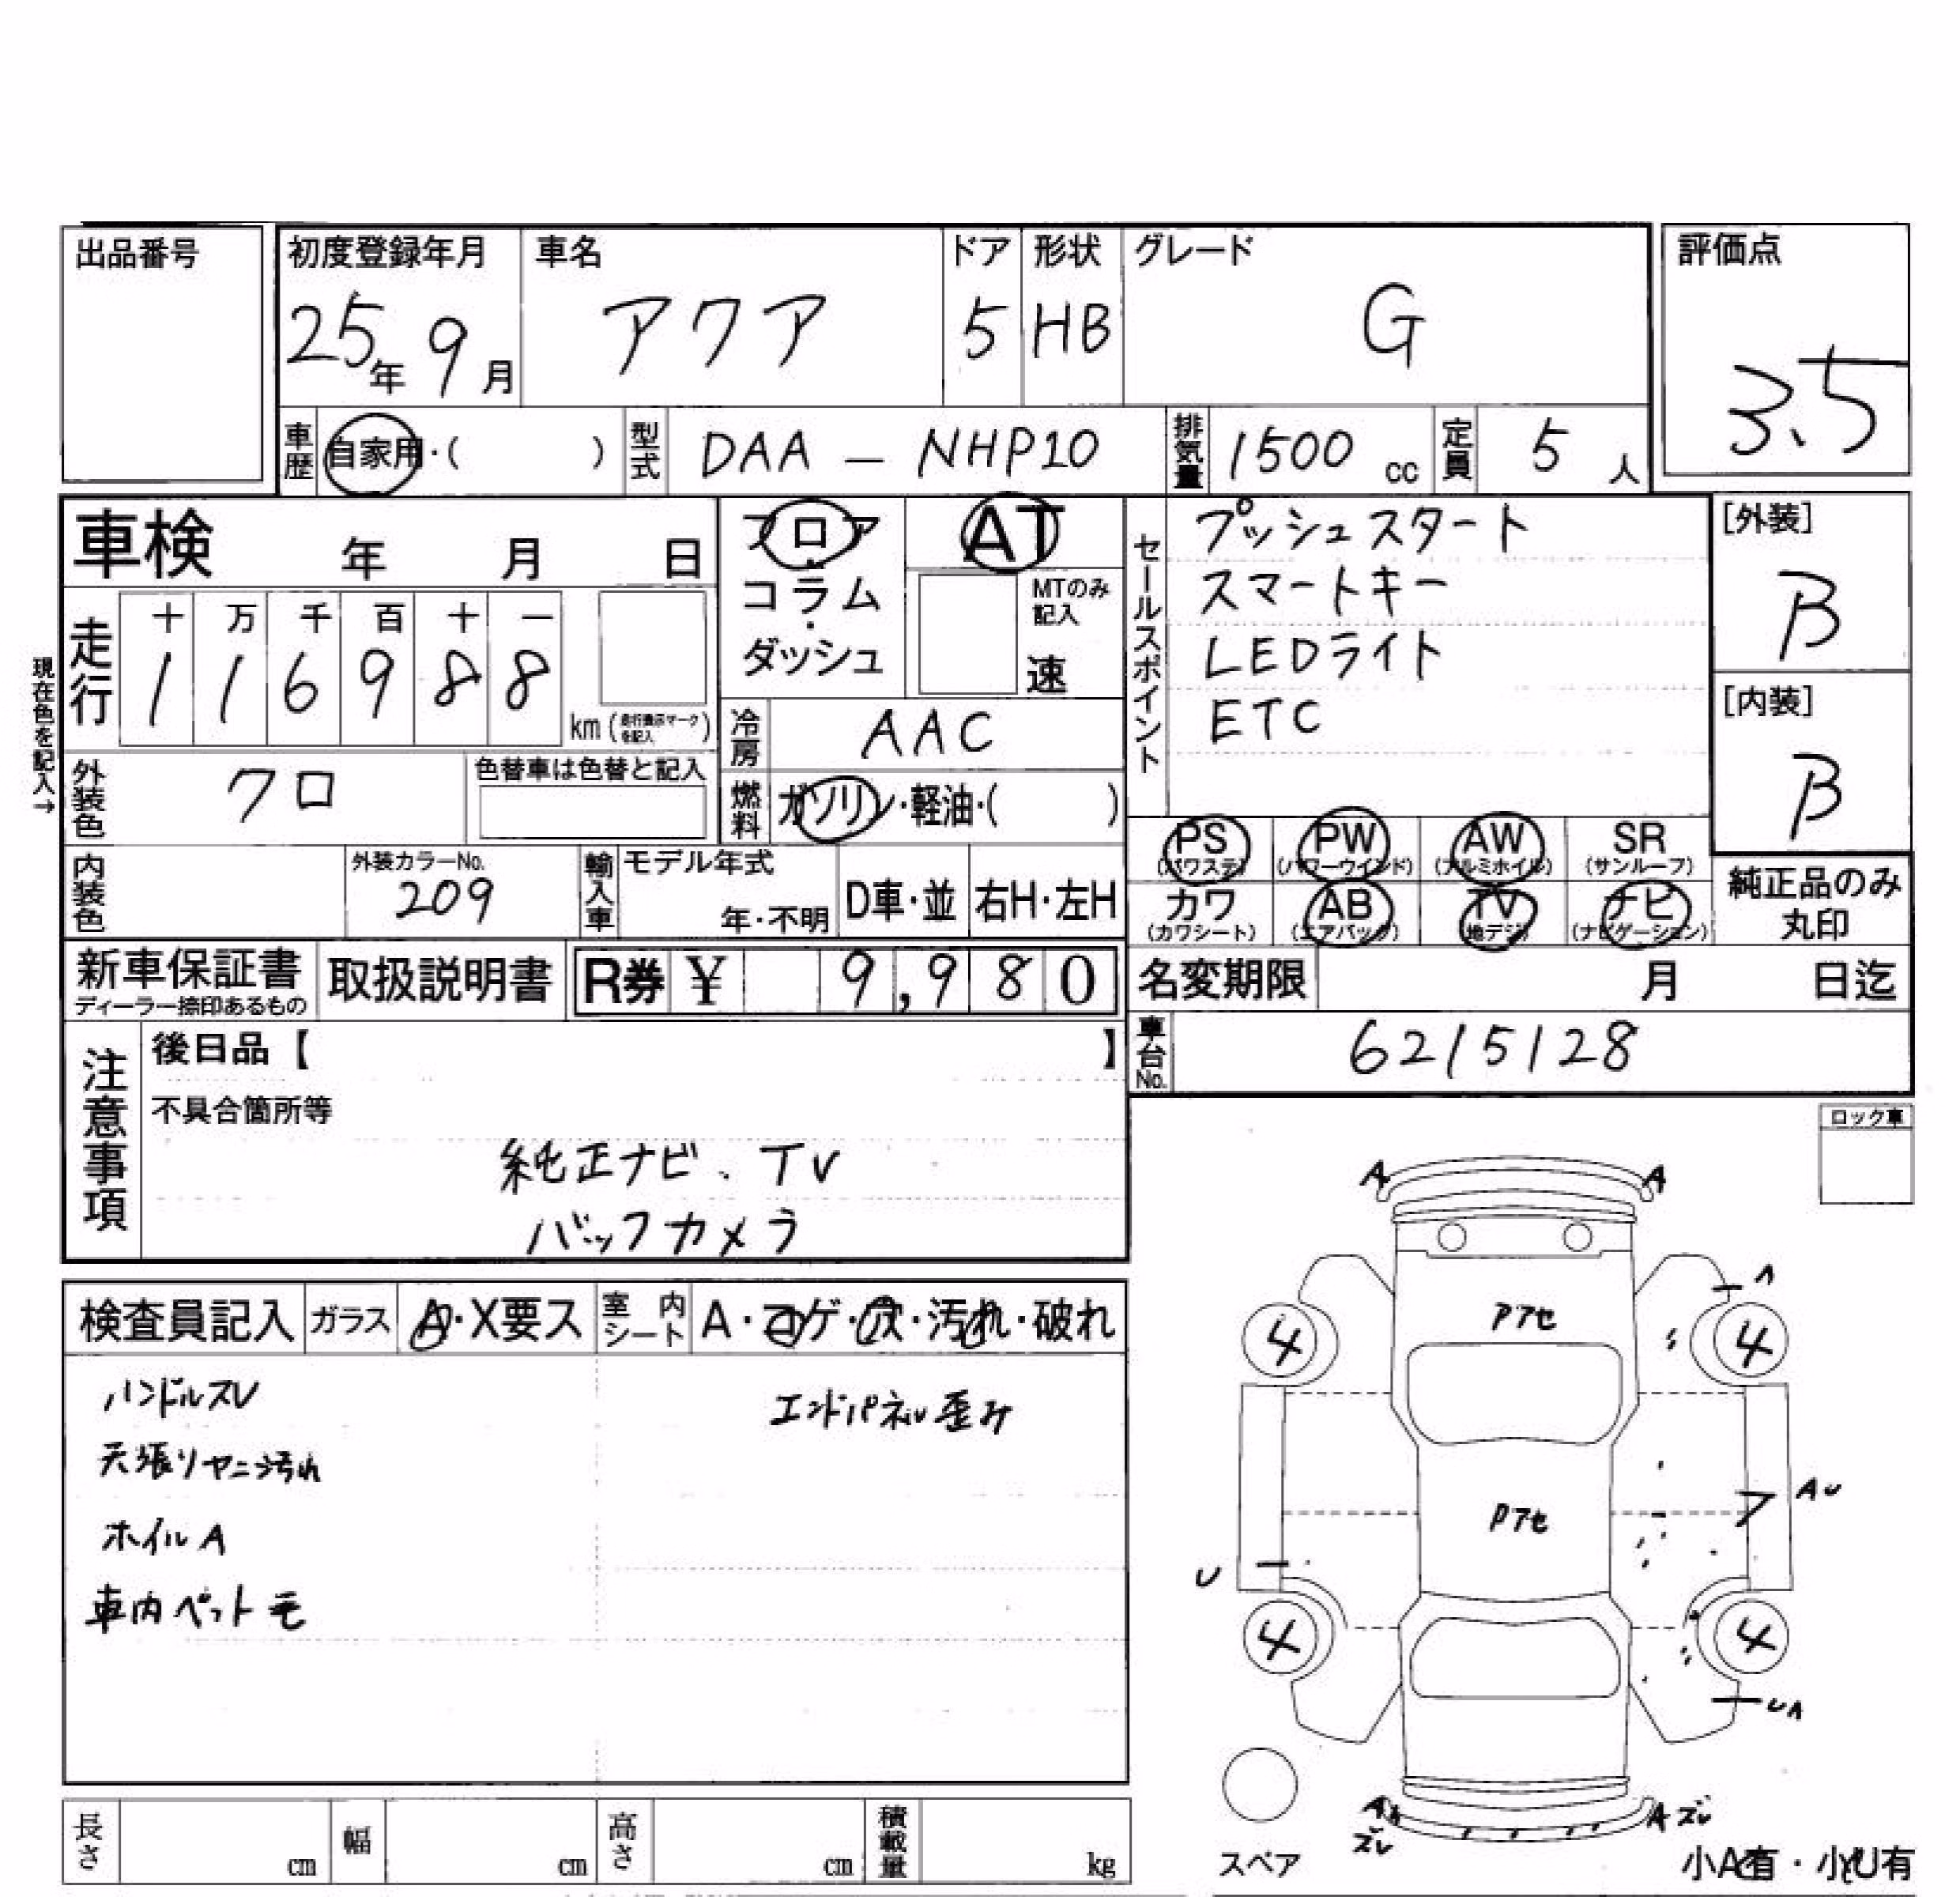 出品番号
初度登録年月 車名 ドア 形状 グレード 評価点
25年 9月 アクア 5 HB G 3.5
車歴 自家用・( ) 型式 DAA － NHP10 排気量 1500 cc 定員 5 人
車検 年 月 日
フロア・コラム・ダッシュ
AT
MTのみ記入
速
セールスポイント
プッシュスタート
スマートキー
LEDライト
ETC
[外装]
B
[内装]
B
現在色を記入→
走行 十 万 千 百 十 一
1 1 6 9 8 8 km (走行表示マークを記入)
冷房 AAC
外装色 クロ 色替車は色替と記入
燃料 ガソリン・軽油・( )
PS (パワステ) PW (パワーウインド) AW (アルミホイル) SR (サンルーフ)
カワ (カワシート) AB (エアバック) TV (地デジ) ナビ (ナビゲーション)
純正品のみ丸印
内装色 外装カラーNo. 209 輸入車 モデル年式 年・不明 D車・並 右H・左H
新車保証書 ディーラー捺印あるもの 取扱説明書 R券 ¥ 9,980
名変期限 月 日迄
車台No. 6215128
注意事項
後日品【 】
不具合箇所等
純正ナビ、TV
バックカメラ
ロック車
検査員記入 ガラス A・X要ス 室内シート A・コゲ・穴・汚れ・破れ
ハンドルスレ エンドパネル歪み
天張りヤニ汚れ
ホイルA
車内ペット毛
A A
A
Pアセ
4 4
Pアセ
AU
U
4 4
UA
A A ズレ
ズレ
スペア
小A有・小U有
長さ cm 幅 cm 高さ cm 積載量 kg